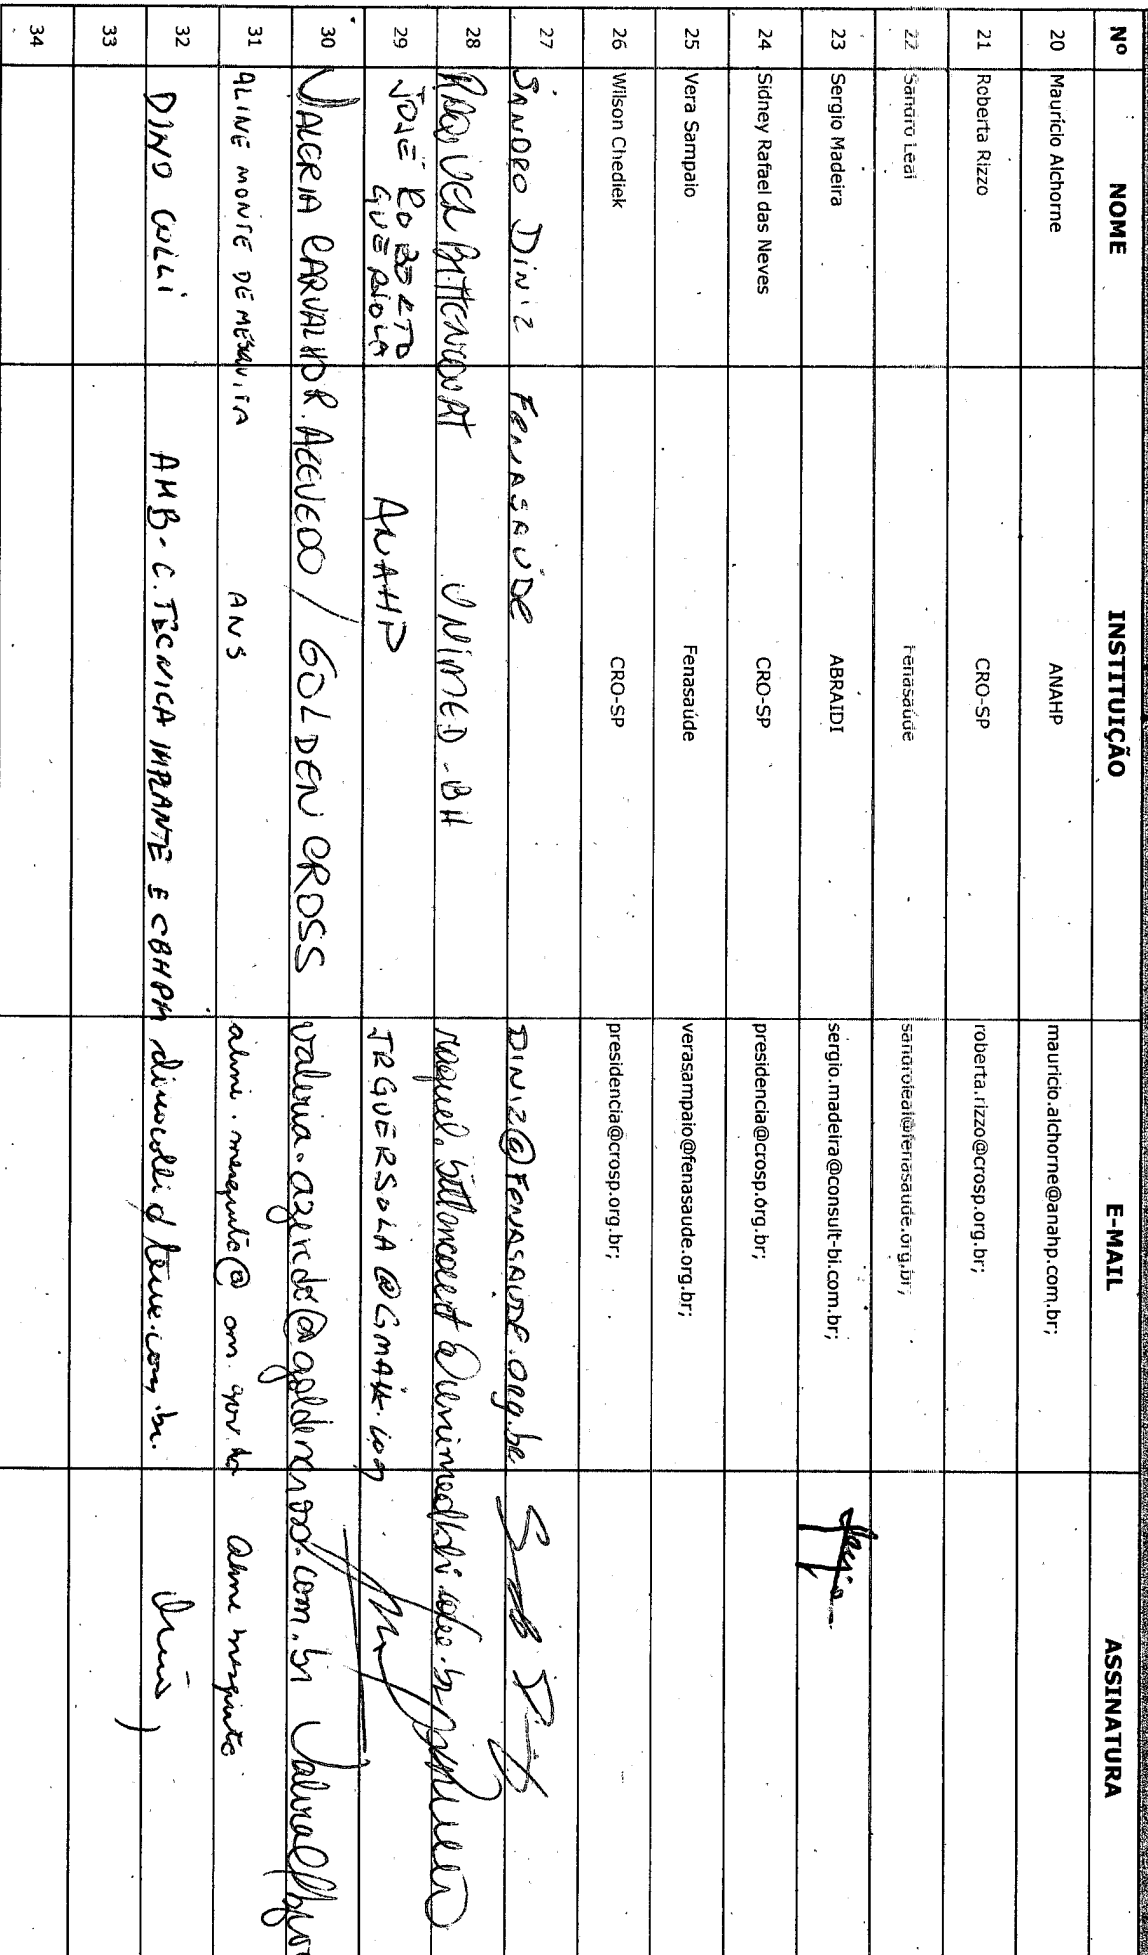 Nº NOME INSTITUIÇÃO E-MAIL ASSINATURA
20 Maurício Alchorne ANAHP mauricio.alchorne@anahp.com.br;
21 Roberta Rizzo CRO-SP roberta.rizzo@crosp.org.br;
22 Sandro Leal Fenasaúde sandroleal@fenasaude.org.br;
23 Sergio Madeira ABRAIDI sergio.madeira@consult-bi.com.br;
24 Sidney Rafael das Neves CRO-SP presidencia@crosp.org.br;
25 Vera Sampaio Fenasaúde verasampaio@fenasaude.org.br;
26 Wilson Chediek CRO-SP presidencia@crosp.org.br;
27 SANDRO DINIZ FENASAÚDE DINIZ@FENASAUDE.ORG.BR
28 BITTENCOURT UNIMED-BH
29 JOSÉ ROBERTO ANAHP JRGUERSOLA@GMAIL.COM
GUERSOLA
30 VALERIA CARVALHO R. AZEVEDO / GOLDEN CROSS valeria.azevedo@goldencross.com.br
31 ALINE MONTE DE MESQUITA ANS aline.mesquita@ans.gov.br Aline Mesquita
32 DINO COLLI AMB-C. TÉCNICA IMPLANTE E CBHPM
33
34